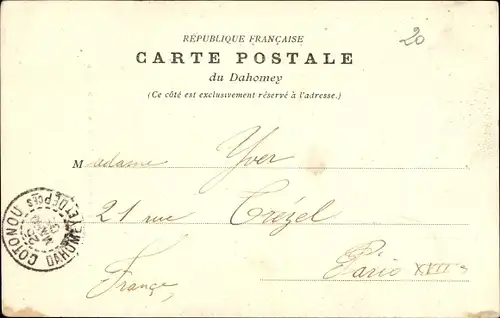 20
RÉPUBLIQUE FRANÇAISE
CARTE POSTALE
du Dahomey
(Ce côté est exclusivement réservé à l'adresse.)
Madame Yver
21 rue Trézel
Paris XVIIe
France,
COTONOU DAHOMEY ET DÉPces